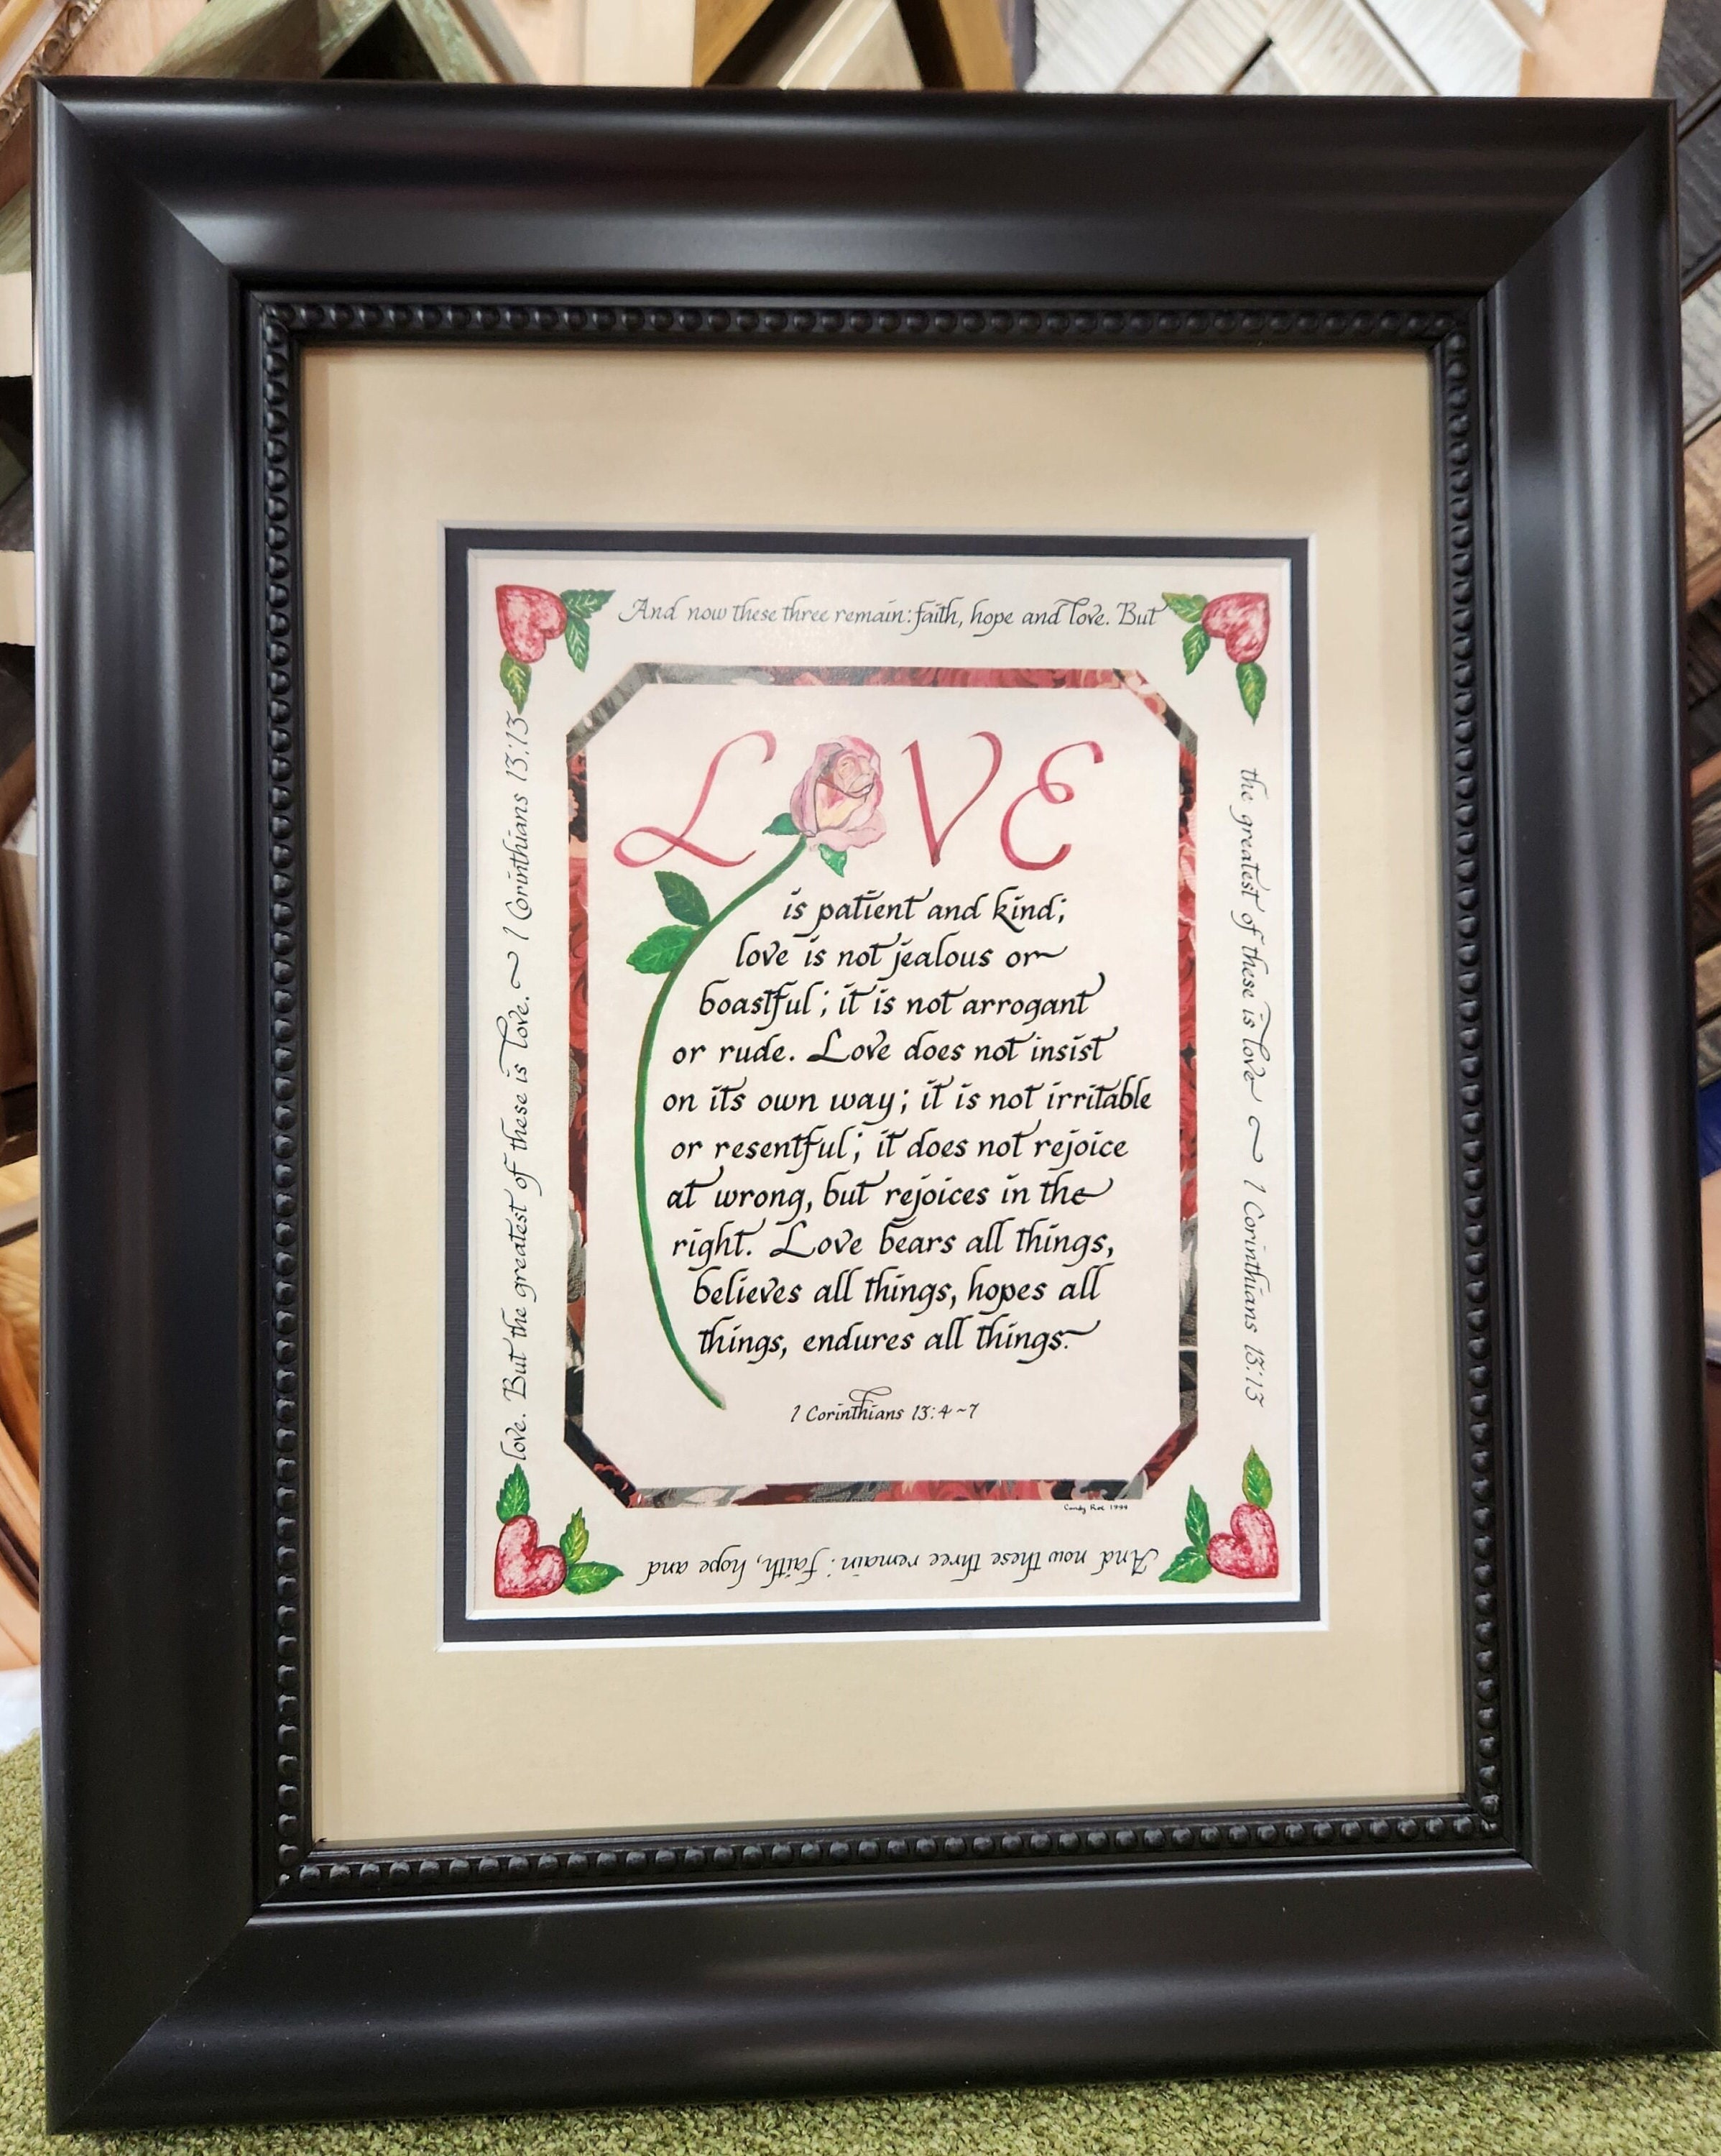 And now these three remain: faith, hope and love. But
the greatest of these is love ~ 1 Corinthians 13:13
And now these three remain: faith, hope and
love. But the greatest of these is love. ~ 1 Corinthians 13:13
LOVE
is patient and kind;
love is not jealous or
boastful; it is not arrogant
or rude. Love does not insist
on its own way; it is not irritable
or resentful; it does not rejoice
at wrong, but rejoices in the
right. Love bears all things,
believes all things, hopes all
things, endures all things.
1 Corinthians 13:4~7
Candy Roe 1999